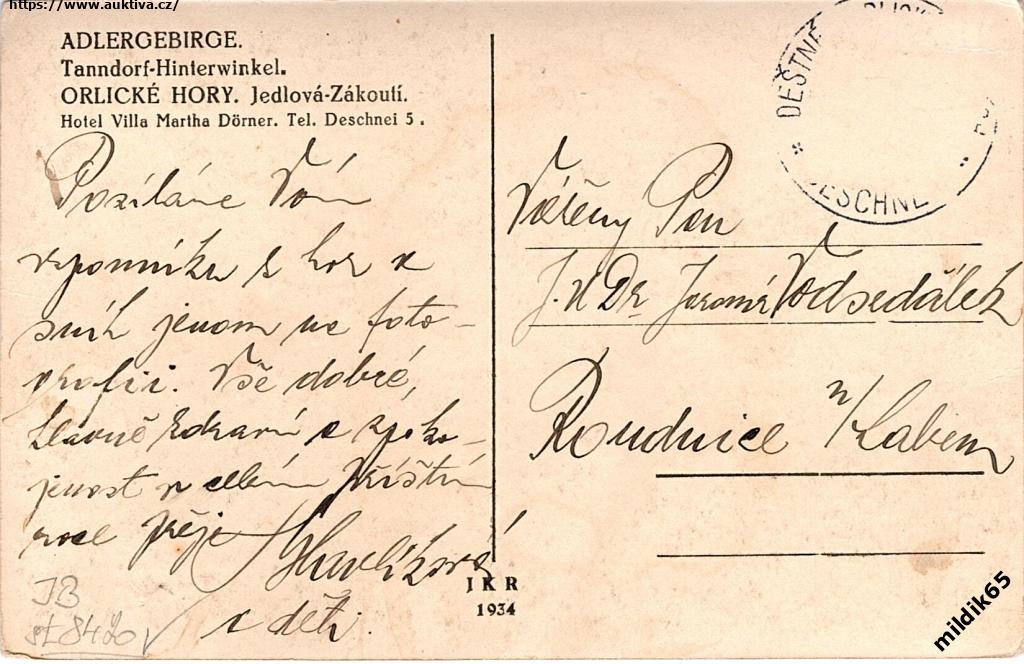 https://www.auktiva.cz/
ADLERGEBIRGE.
Tanndorf-Hinterwinkel.
ORLICKÉ HORY. Jedlová-Zákoutí.
Hotel Villa Martha Dörner. Tel. Deschnei 5.
Posíláme Vám
vzpomínku z hor a
sníh jenom na foto-
grafii. Vše dobré,
hlavně zdraví a spoko-
jenost v celém příštím
roce přeje Havlíková
a děti.
DEŠTNÁ
DESCHNE
Vážený Pan
J.U.Dr. Jaromír Vodsedálek
Roudnice n/Labem
JKR
1934
JB
8420
mildik65